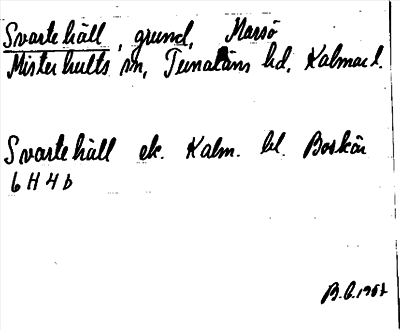 Svartehäll, grund, Marsö
Misterhults sn, Tunaläns hd, Kalmar l.
Svartehäll ek. Kalm. bl. Boskär
6 H 4 b